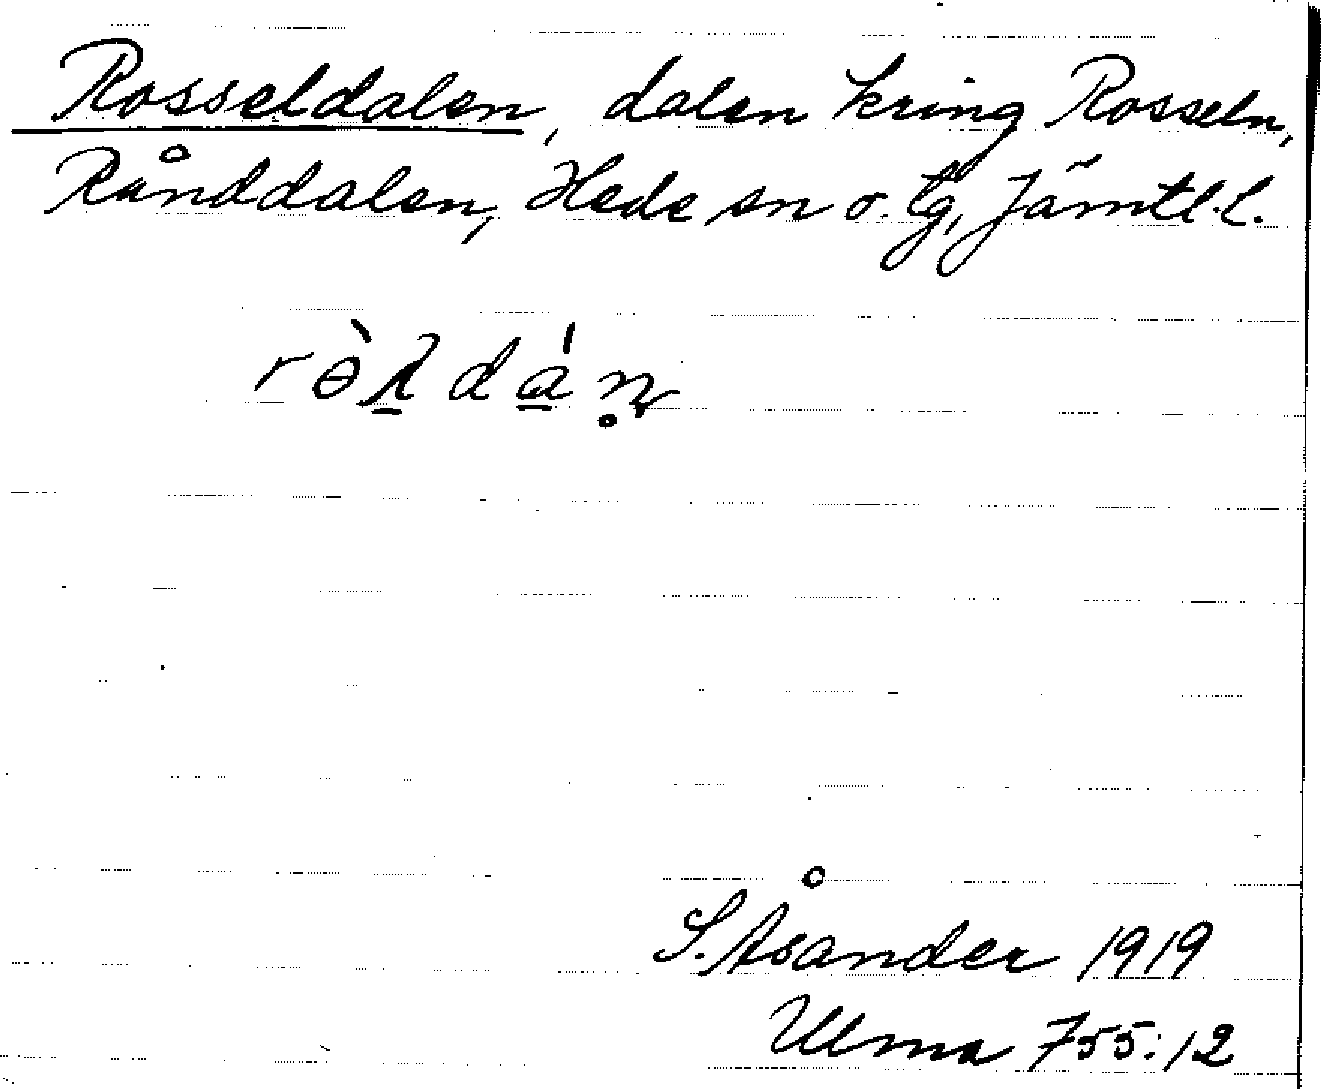 Rosseldalen, dalen kring Rosseln,
Rånddalen, Hede sn o. tg, Jämtl. l.
rɵ̀ʎ̠dá̠n̥
S. Åsander 1919
Ulma 755:12